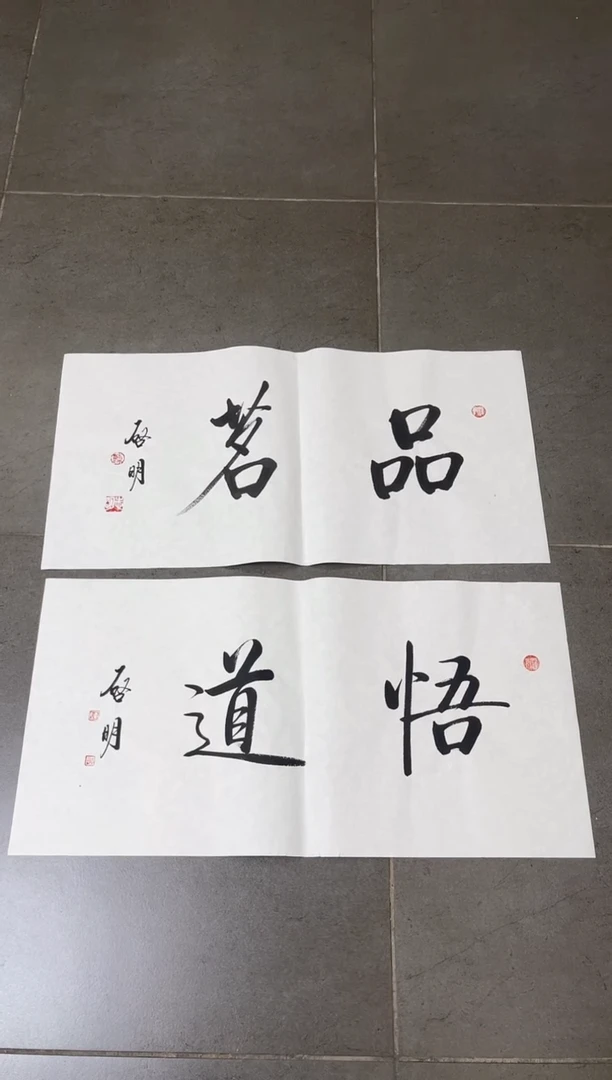 品茗
启明
悟道
启明